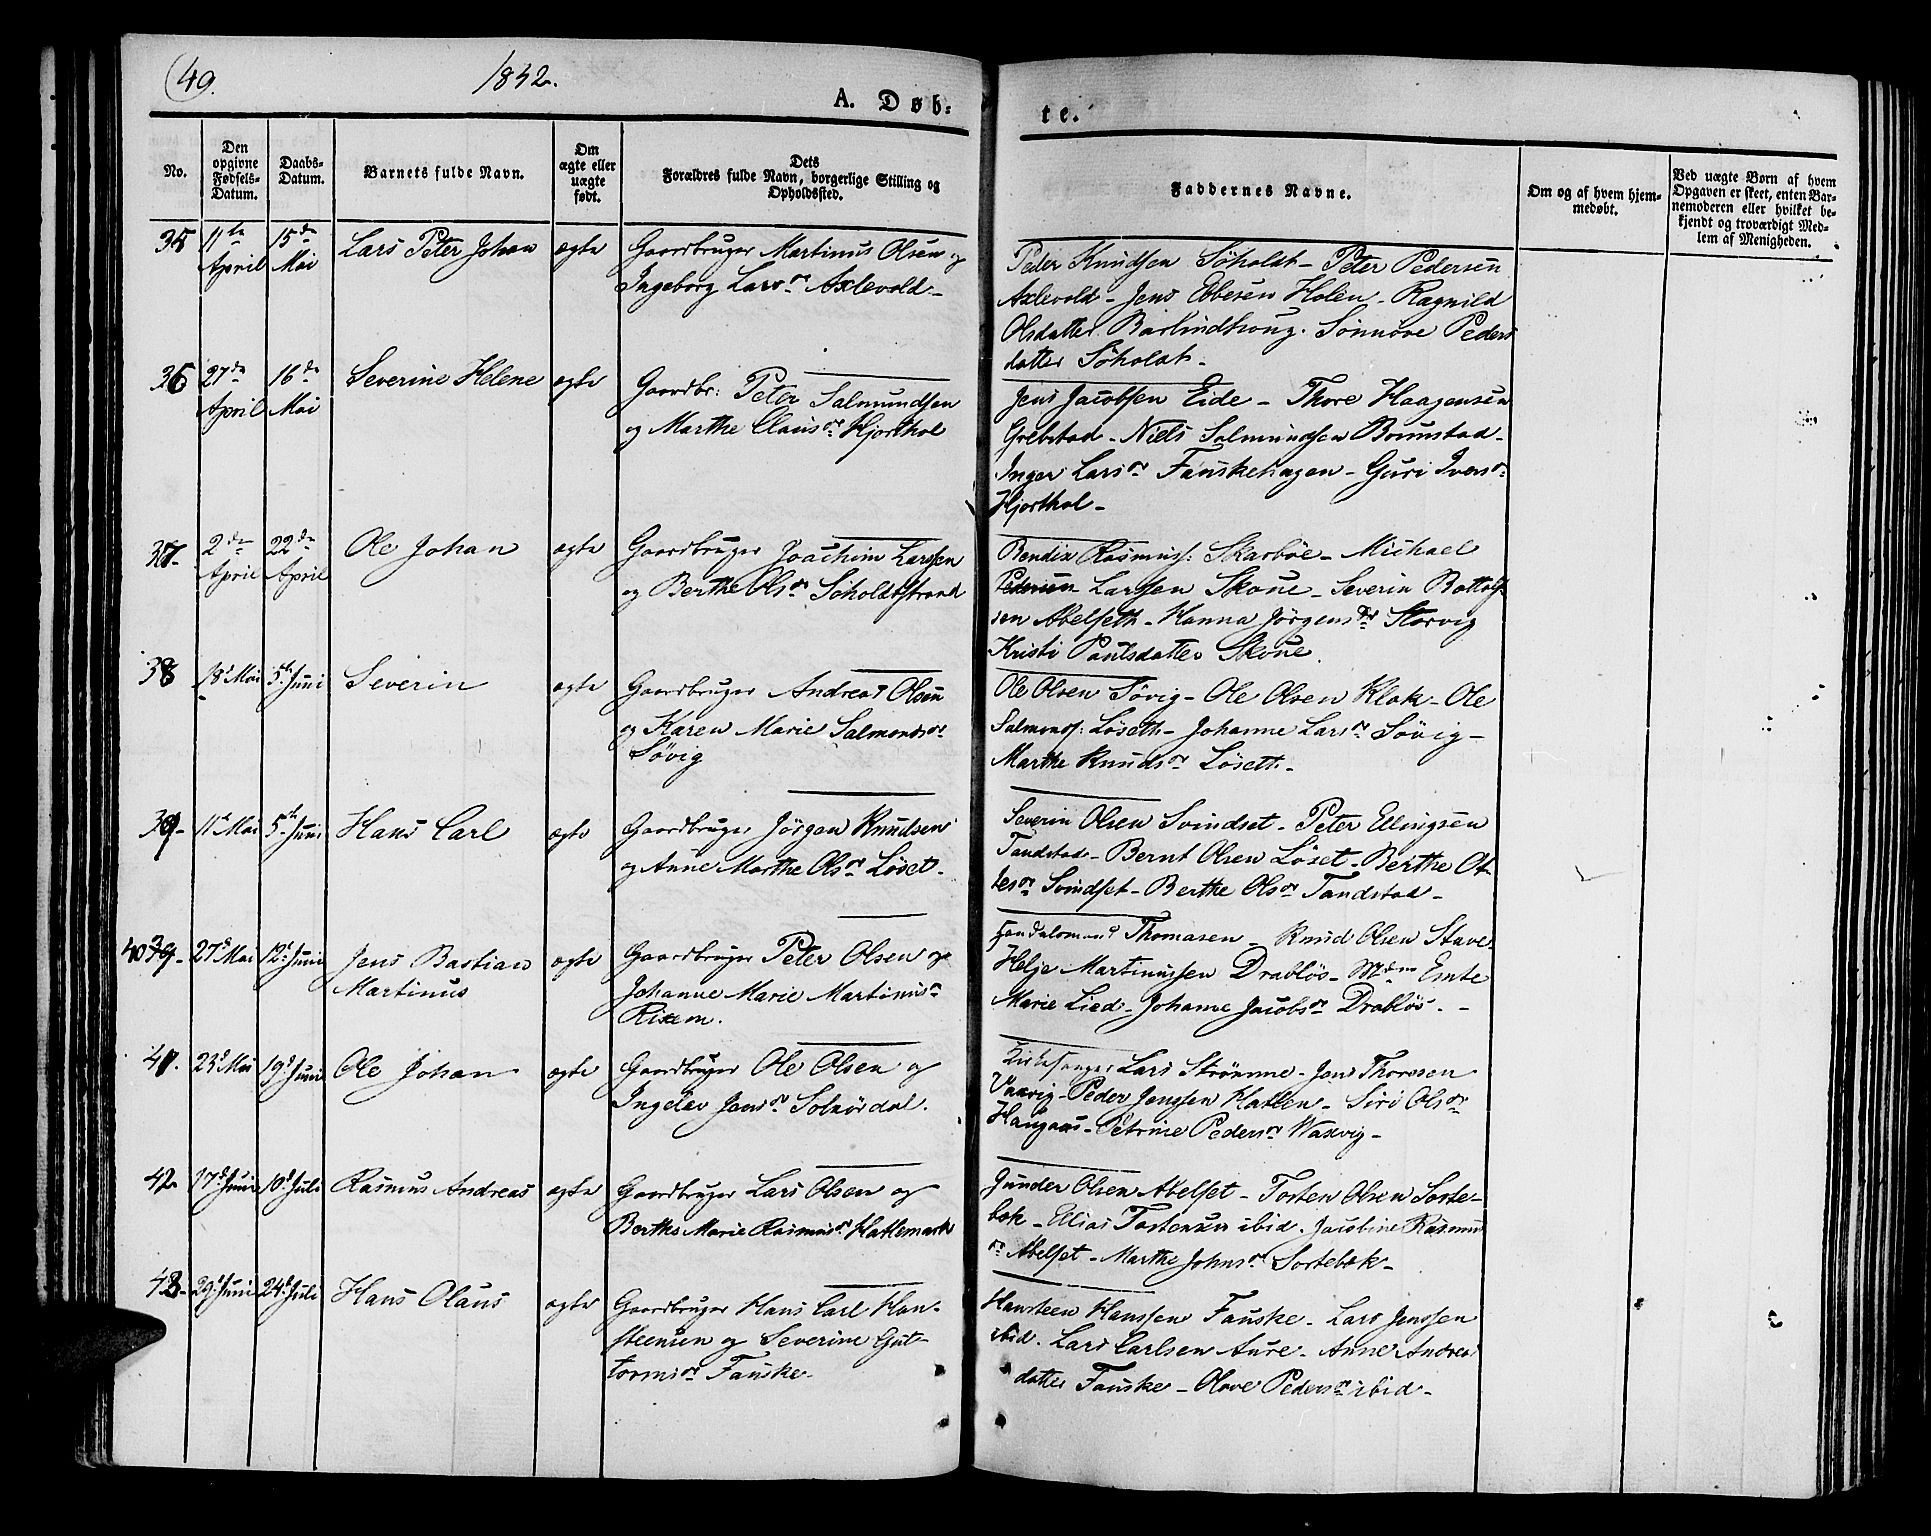 49.
1842.
A. Døb-
te.
No.
Den opgivne Fødsels-Datum.
Daabs-Datum.
Barnets fulde Navn.
Om ægte eller uægte født.
Dets Forældres fulde Navn, borgerlige Stilling og Opholdssted.
Faddernes Navne.
Om og af hvem hjemmedøbt.
Ved uægte Børn af hvem Opgaven er skeet, enten Barnemoderen eller hvilket bekjendt og troværdigt Medlem af Menigheden.
35 11te April 15de Mai Lars Peter Johan ægte
Gaardbruger Martinus Olsen og
Ingeborg Larsdr Axlevold-
Peder Knudsen Søholdt- Peter Pedersen
Axlevold- Jens Ebbesen Holen- Ragnild
Olsdatter Barlindhoug. Sønnøve Peders
datter Søholdt-
36 27de April 16de Mai Severine Helene ægte
Gaardbr: Peter Salmundsen
og Marthe Clausdr Hjorthol
Jens Jacobsen Eide- Thore Haagensen
Grebstad- Niels Salmundsen Brunstad-
Inger Larsdr Fauskehagen- Guri Iversdr
Hjorthol-
37- 2den April 22de April Ole Johan ægte
Gaardbruger Joachim Larssen
og Berthe Olsdr Søholdtstrand
Bendix Rasmuss: Skarbøe- Michael
Larssen Skoue- Severin Bottolf-
sen Abelseth- Hanna Jørgensdr Storvig
Kristi Paulsdatter Skoue.
38 18 Mai 5te Juni Severin ægte
Gaardbruger Andreas Olsen
og Karen Marie Salmondsdr
Søvig
Ole Olsen Søvig- Ole Olsen Klok- Ole
Salmonds: Løseth- Johanne Larsdr Søvig-
Marthe Knudsdr Løseth-
39- 11t Mai 5te Juni Hans Carl ægte
Gaardbruger Jörgen Knudsen
og Anne Marthe Olsdr Løset-
Severin Olsen Svindset- Peter Ellingsen
Tandstad- Bernt Olsen Løset- Berthe
Svindset- Berthe Olsdr Tandstad-
40 39- 27d Mai 12t Juni Jens Bastian
Martinus ægte
Gaardbruger Peter Olsen og
Johanne Marie Martinusdr
Rixem.
Handelsmand Thomasen- Knud Olsen Stave-
Helje Martinussen Drabløs- Mdm Emte
Marie Lied- Johanne Jacobsdr Drabløs.-
41. 23d Mai 19d Juni Ole Johan ægte
Gaardbruger Ole Olsen og
Ingelev Jensdr Solnördal.
Kirkesanger Lars Strömme- Jens Thoresen
Vaxvig- Peder Jenssen Hatlen- Siri Olsdr
Haugaas- Petrine Pedersdr Waxvig-
42 17d Juni 10d Juli Rasmus Andreas ægte
Gaardbruger Lars Olsen og
Berthe Marie Rasmusdr Hatlemark
Gunder Olsen Abelset- Tosten Olsen Sorte-
bæk- Elias Tostensen ibid. Jacobine Rasmus
dr Abelset- Marthe Johnsdr Sortebæk-
43- 29d Juni 24d Juli Hans Olaus ægte
Gaardbruger Hans Carl Han-
steensen og Severine Gut-
tormsdr Fauske-
Hansteen Hanssen Fauske- Lars Jenssen
ibid. Lars Carlsen Aure- Anne Andrea
datter Fauske- Olave Pedersdr ibid-